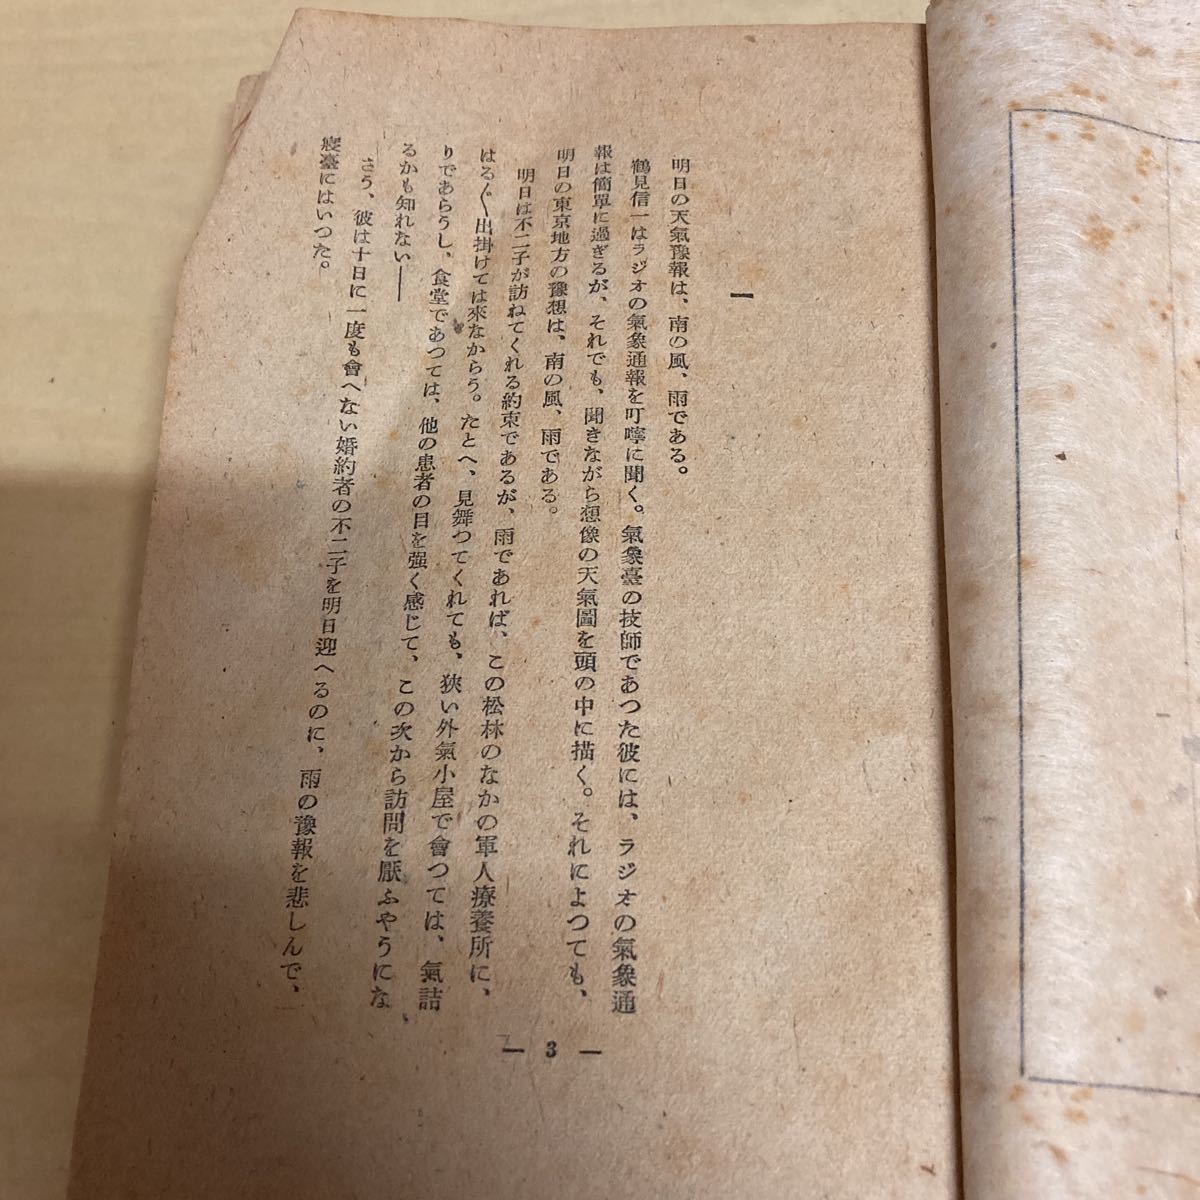 一
明日の天氣豫報は、南の風、雨である。
鶴見信一はラジオの氣象通報を叮嚀に聞く。氣象臺の技師であつた彼には、ラジオの氣象通
報は簡單に過ぎるが、それでも、聞きながら想像の天氣圖を頭の中に描く。それによつても、
明日の東京地方の豫想は、南の風、雨である。
明日は不二子が訪ねてくれる約束であるが、雨であれば、この松林のなかの軍人療養所に、
はる〴〵出掛けては來なからう。たとへ、見舞つてくれても、狹い外氣小屋で會つては、氣詰
りであらうし、食堂であつては、他の患者の目を强く感じて、この次から訪問を厭ふやうにな
るかも知れない――
さう、彼は十日に一度も會へない婚約者の不二子を明日迎へるのに、雨の豫報を悲しんで、
寢臺にはいつた。
— 3 —